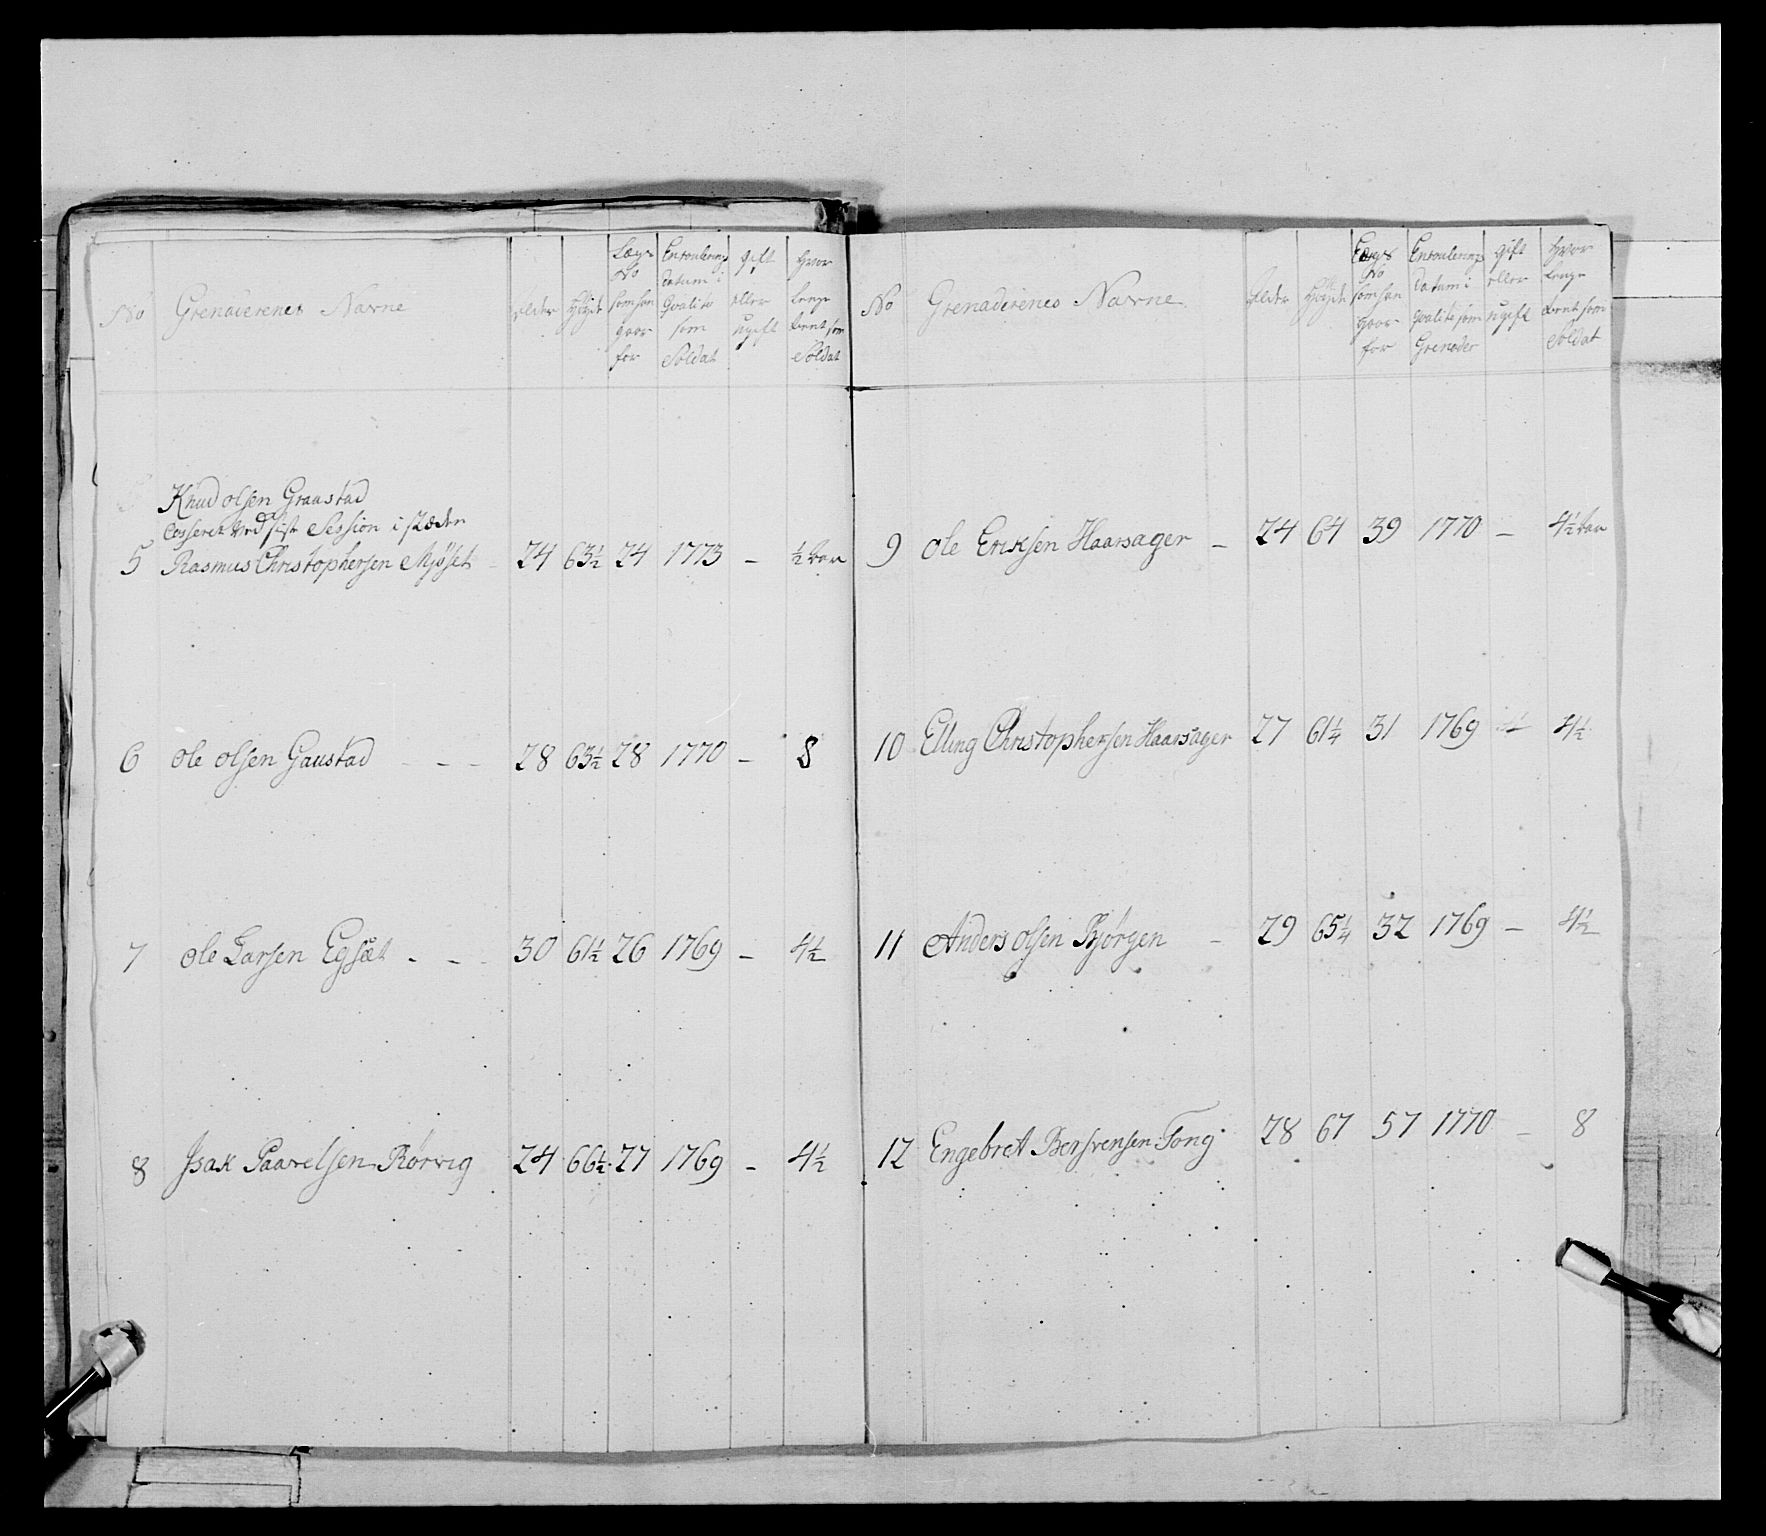 No Grenaderenes Navne Alder Høyde Lægs No som han gaar for Enroulerings Datum i Qvalite som Soldat gift eller ugift hvor lenge tient som Soldat
Knud olsen Graustad
Casseret ved siste Session i stæden
5 Rasmus Christophersen Mjøset - 24 63½ 24 1773 - ½ aar
6 ole olsen Gaustad - - - 28 63½ 28 1770 - 8
7 ole Larsen Egsæt - - - 30 61½ 26 1769 - 4½
8 Isak Paavelsen Rørvig 24 66½ 27 1769 - 4½
No Grenaderenes Navne Alder Høyde Lægs No som han gaar for Enroulerings Datum i Qvalite som Grenader gift eller ugift hvor lenge tient som Soldat
9 ole Eriksen Haarsager - 24 64 39 1770 - 4½ aar
10 Elling Christophersen Haarsager 27 61¼ 31 1769 - 4½
11 Anders olsen Bjørgen - 29 65¼ 32 1769 - 4½
12 Engebret Bersvensen Tong 28 67 57 1770 - 8